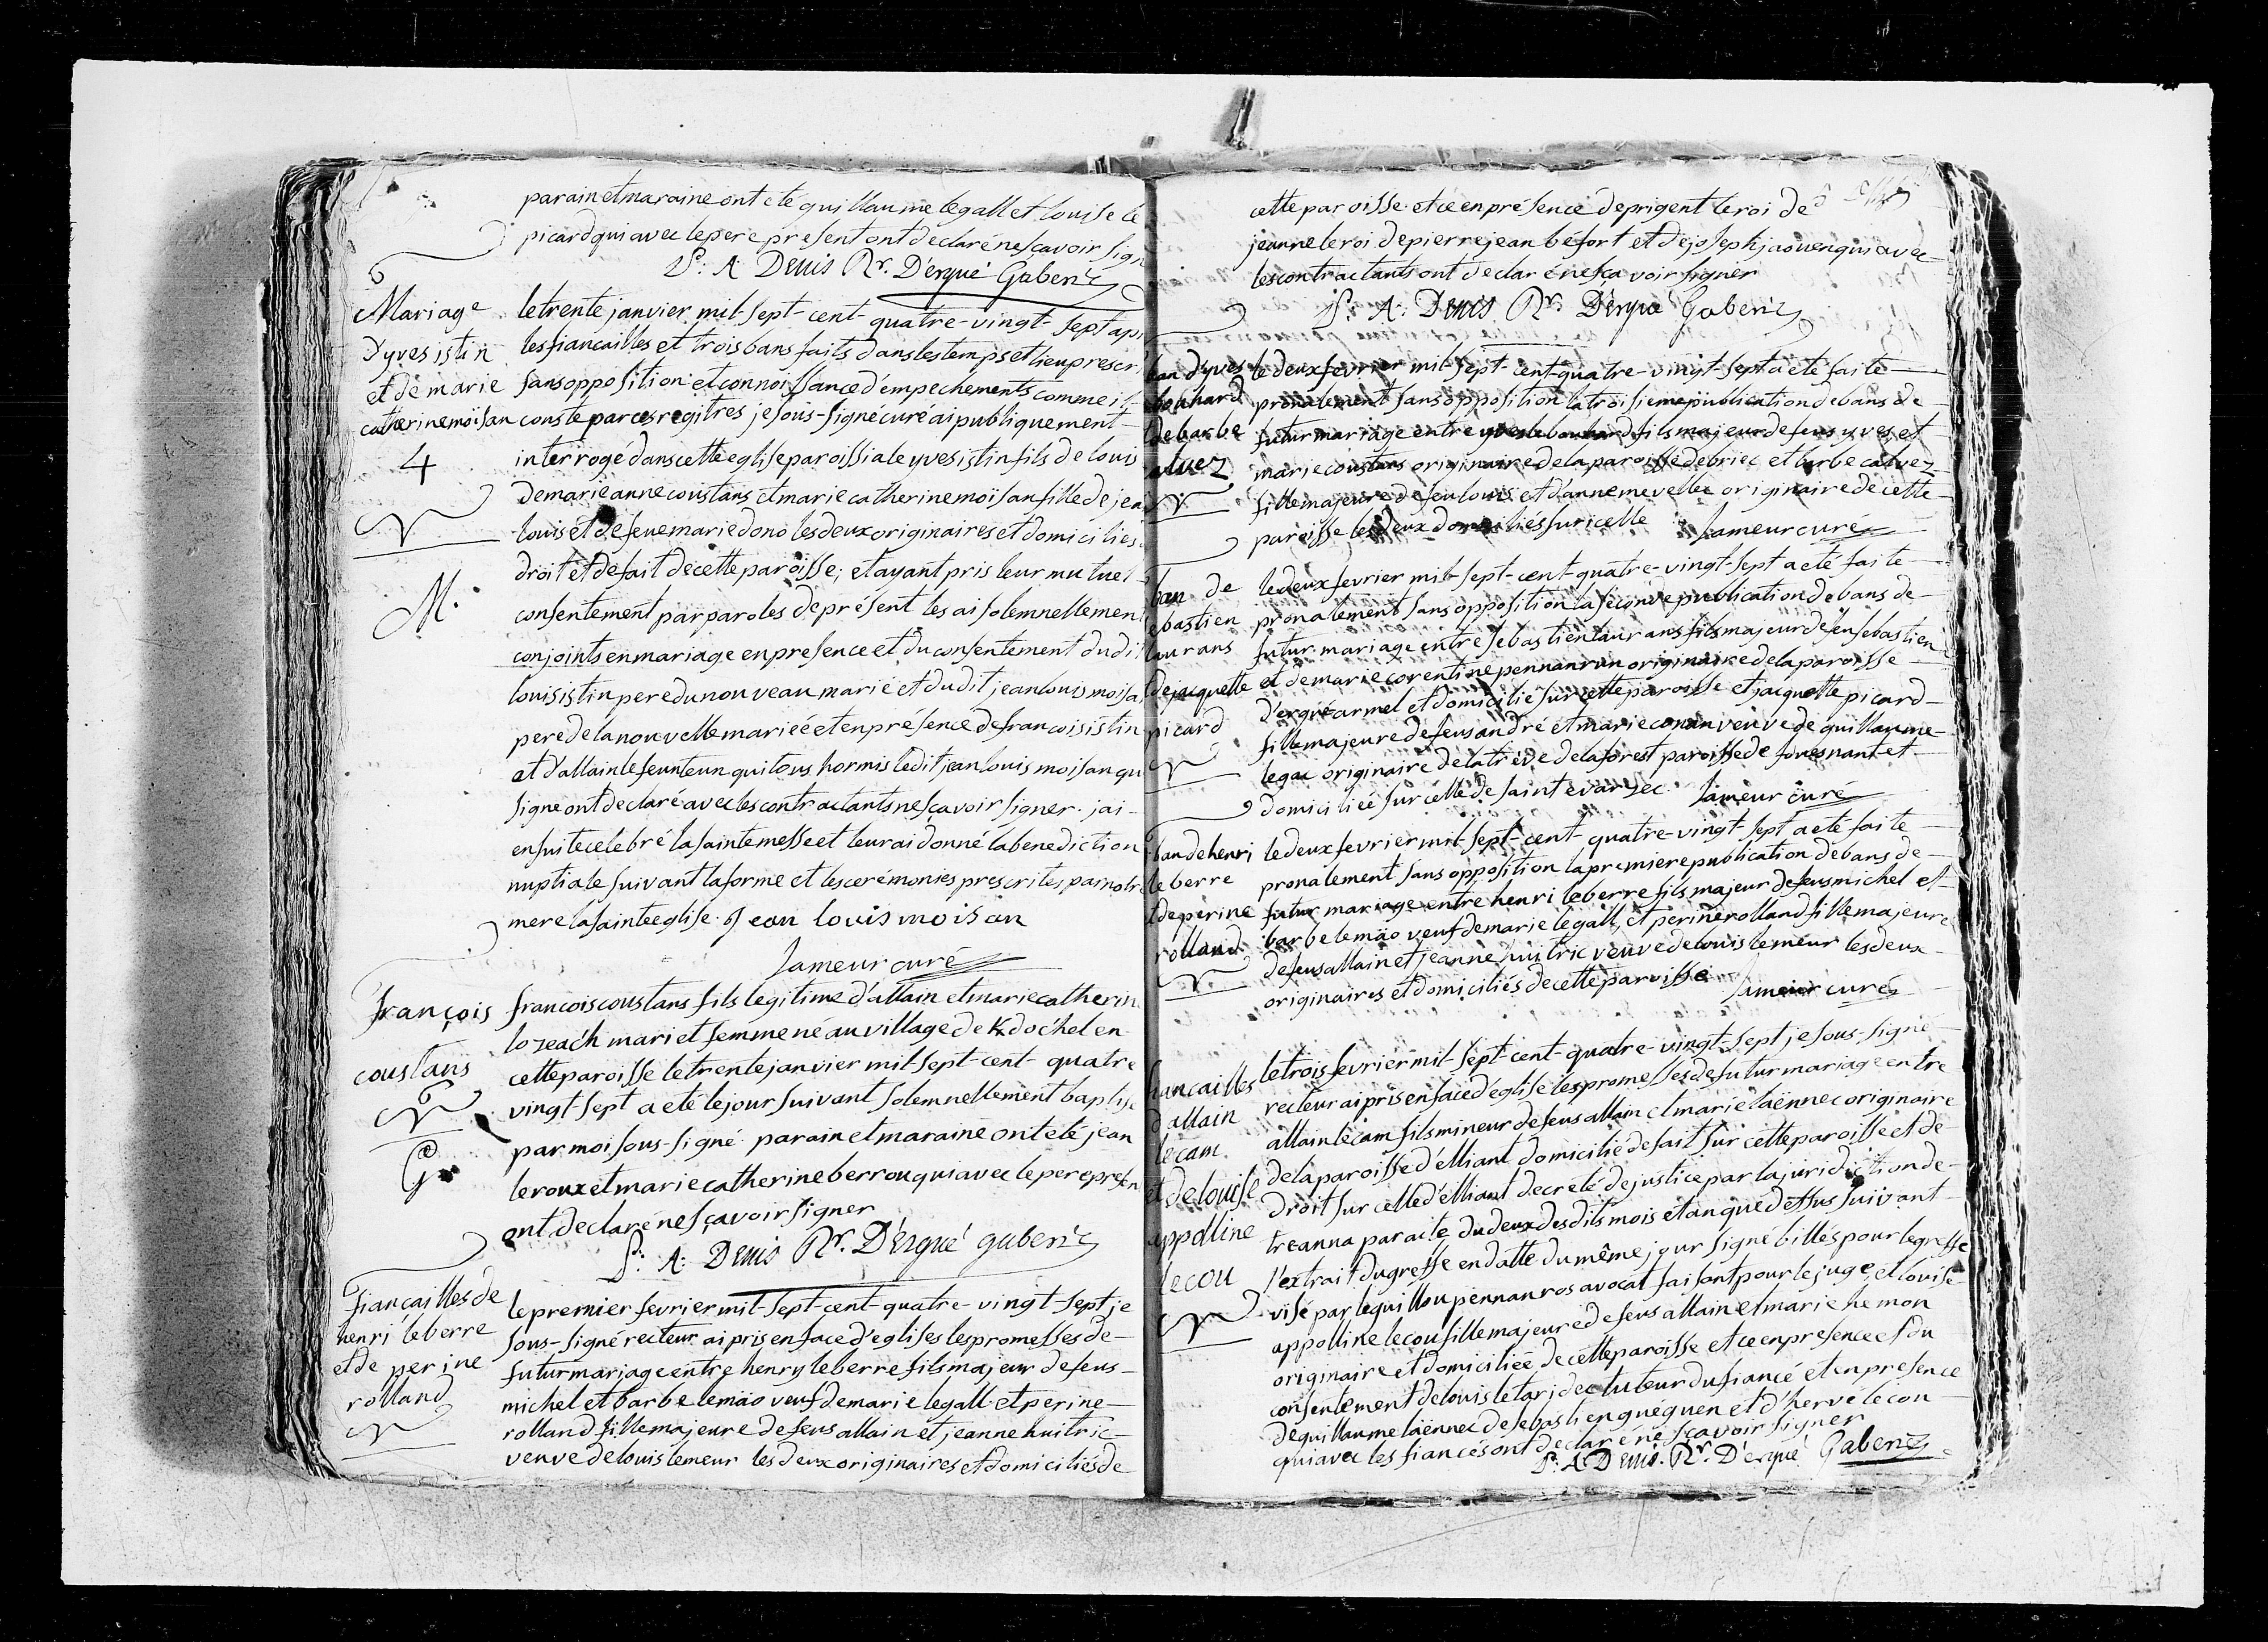 parain et maraine ont eté guillaume legall et louise le
picard qui avec le pere present ont declaré ne scavoir sign
P: A Denis Rr. D'ergué Gaberic
Mariage
d'yves istin
et de marie
catherine moisan
4
le trente janvier mil-sept-cent-quatre-vingt-sept apr
les fiancailles et trois bans faits dans les temps et lieu prescri
sans opposition et connoissance d'empechements comme il
conste par ces registres je sous-signé curé ai publiquement
interrogé dans cette eglise paroissiale yves istin fils de louis
de marie anne coustans et marie catherine moisan fille de jea
louis et de feue marie dono les deux originaires et domicilies
droit et de fait de cette paroisse; et ayant pris leur mutuel
M.
consentement par paroles de présent les ai solemnellemen
conjoints en mariage en presence et du consentement dudi
louis istin pere du nouveau marié et dudit jean louis moisa
pere de la nouvelle mariéé et en présence de francois istin
et d'allain le feunteun qui tous hormis ledit jean louis moisan qu
signe ont declaré avec les contractants ne sçavoir signer. jai
ensuite celebré la sainte messe et leur ai donné la benediction
nuptiale suivant la forme et les cerémonies prescrites par notr
mere la sainte eglise. Jean louis moisan
Jameur curé
françois
coustans
G
francois coustans fils legitime d'allain et marie catherin
lozeac'h mari et femme né au village de K/doc'hel en
cette paroisse le trente janvier mil-sept-cent-quatre
vingt sept a eté le jour suivant solemnellement baptisé
par moi sous-signé. parain et maraine ont eté jean
leroux et marie catherine berrou qui avec le pere presen
ont declaré ne sçavoir signer
P: A: Denis Rr. D'Ergué gaberic
fiançailles de
henri leberre
et de perine
rolland
le premier fevrier mil-sept-cent-quatre-vingt-sept je
sous-signé recteur ai pris en face d'eglises les promesses de
futur mariage entre henry leberre fils majeur de feus
michel et barbe lemäo veuf de marie legall et perine
rolland fille majeure de feus allain et jeanne huitric
veuve de louis lemeur les deux originaires et domiciliés de
cette paroisse. et ce en présence de prigent le roi de
jeanne le roi de pierre jean béfort et de joseph jaouen qui avec
les contractants ont declaré ne sça voir signer
P: A: Denis Rr. D'ergué Gaberic
ban d'yves
bouhard
de barbe
alvez
le deux fevrier mil-sept-cent-quatre-vingt-sept a eté faite
pronalement sans opposition la troisieme publication de bans de
futur mariage entre yves le bouhard fils majeur de feus yves et
marie coustans originaire de la paroisse de briec et barbe calvez
fille majeure de feu louis et d'anne mevellec originaire de cette
paroisse les deux domiciliés sur icelle Jameur curé
ban de
ebastien
laurans
de jacquette
picard
le deux fevrier mil-sept-cent-quatre-vingt-sept a eté faite
pronalement sans opposition la seconde publication de bans de
futur mariage entre sebastien laurans fils majeur de feu sebastien
et de marie corentine pennanrun originaire de la paroisse
d'ergué armel et domicilié sur cette paroisse et jacquette picard
fille majeure de feus andré et marie conan veuve de guillaume
legac originaire de la trêve de la forest paroisse de fouesnant et
domiciliéé sur celle de saint evarzec. Jameur curé
ban de henri
le berre
de perine
rolland
le deux fevrier mil-sept-cent-quatre-vingt-sept a eté faite
pronalement sans opposition la premiere publication de bans de
futur mariage entre henri leberre fils majeur de feus michel et
barbe lemäo veuf de marie legall, et perine rolland fille majeure
de feus allain et jeanne huitric veuve de louis lemeur les deux
originaires et domiciliés de cette paroisse Jameur curé
fiancailles
d'allain
lecam
et de louise
appolline
lecou
le trois fevrier mil-sept-cent-quatre-vingt-sept je sous-signé
recteur ai pris en face d'eglise les promesses de futur mariage entre
allain lecam fils mineur de feus allain et marie laënnec originaire
de la paroisse d'elliant domicilié de fait sur cette paroisse et de
droit sur celle d'elliant decrété de justice par la juridiction de
treanna par acte du deux desdits mois et an que dessus suivant
l'extrait du greffe en datte du même jour signé billés pour le greffe
visé par le guillou pennanros avocat faisant pour le juge, et louise
appolline lecou fille majeure de feus allain et marie hemon
originaire et domiciliéé de cette paroisse et ce en presence et du
consentement de louis le taridec tuteur du fiancé et en presence
de guillaume laënnec de sebastien guéguen et d'hervé lecou
qui avec les fiancés ont declaré ne sçavoir signer
P. A Denis. Rr. D'ergué Gaberic